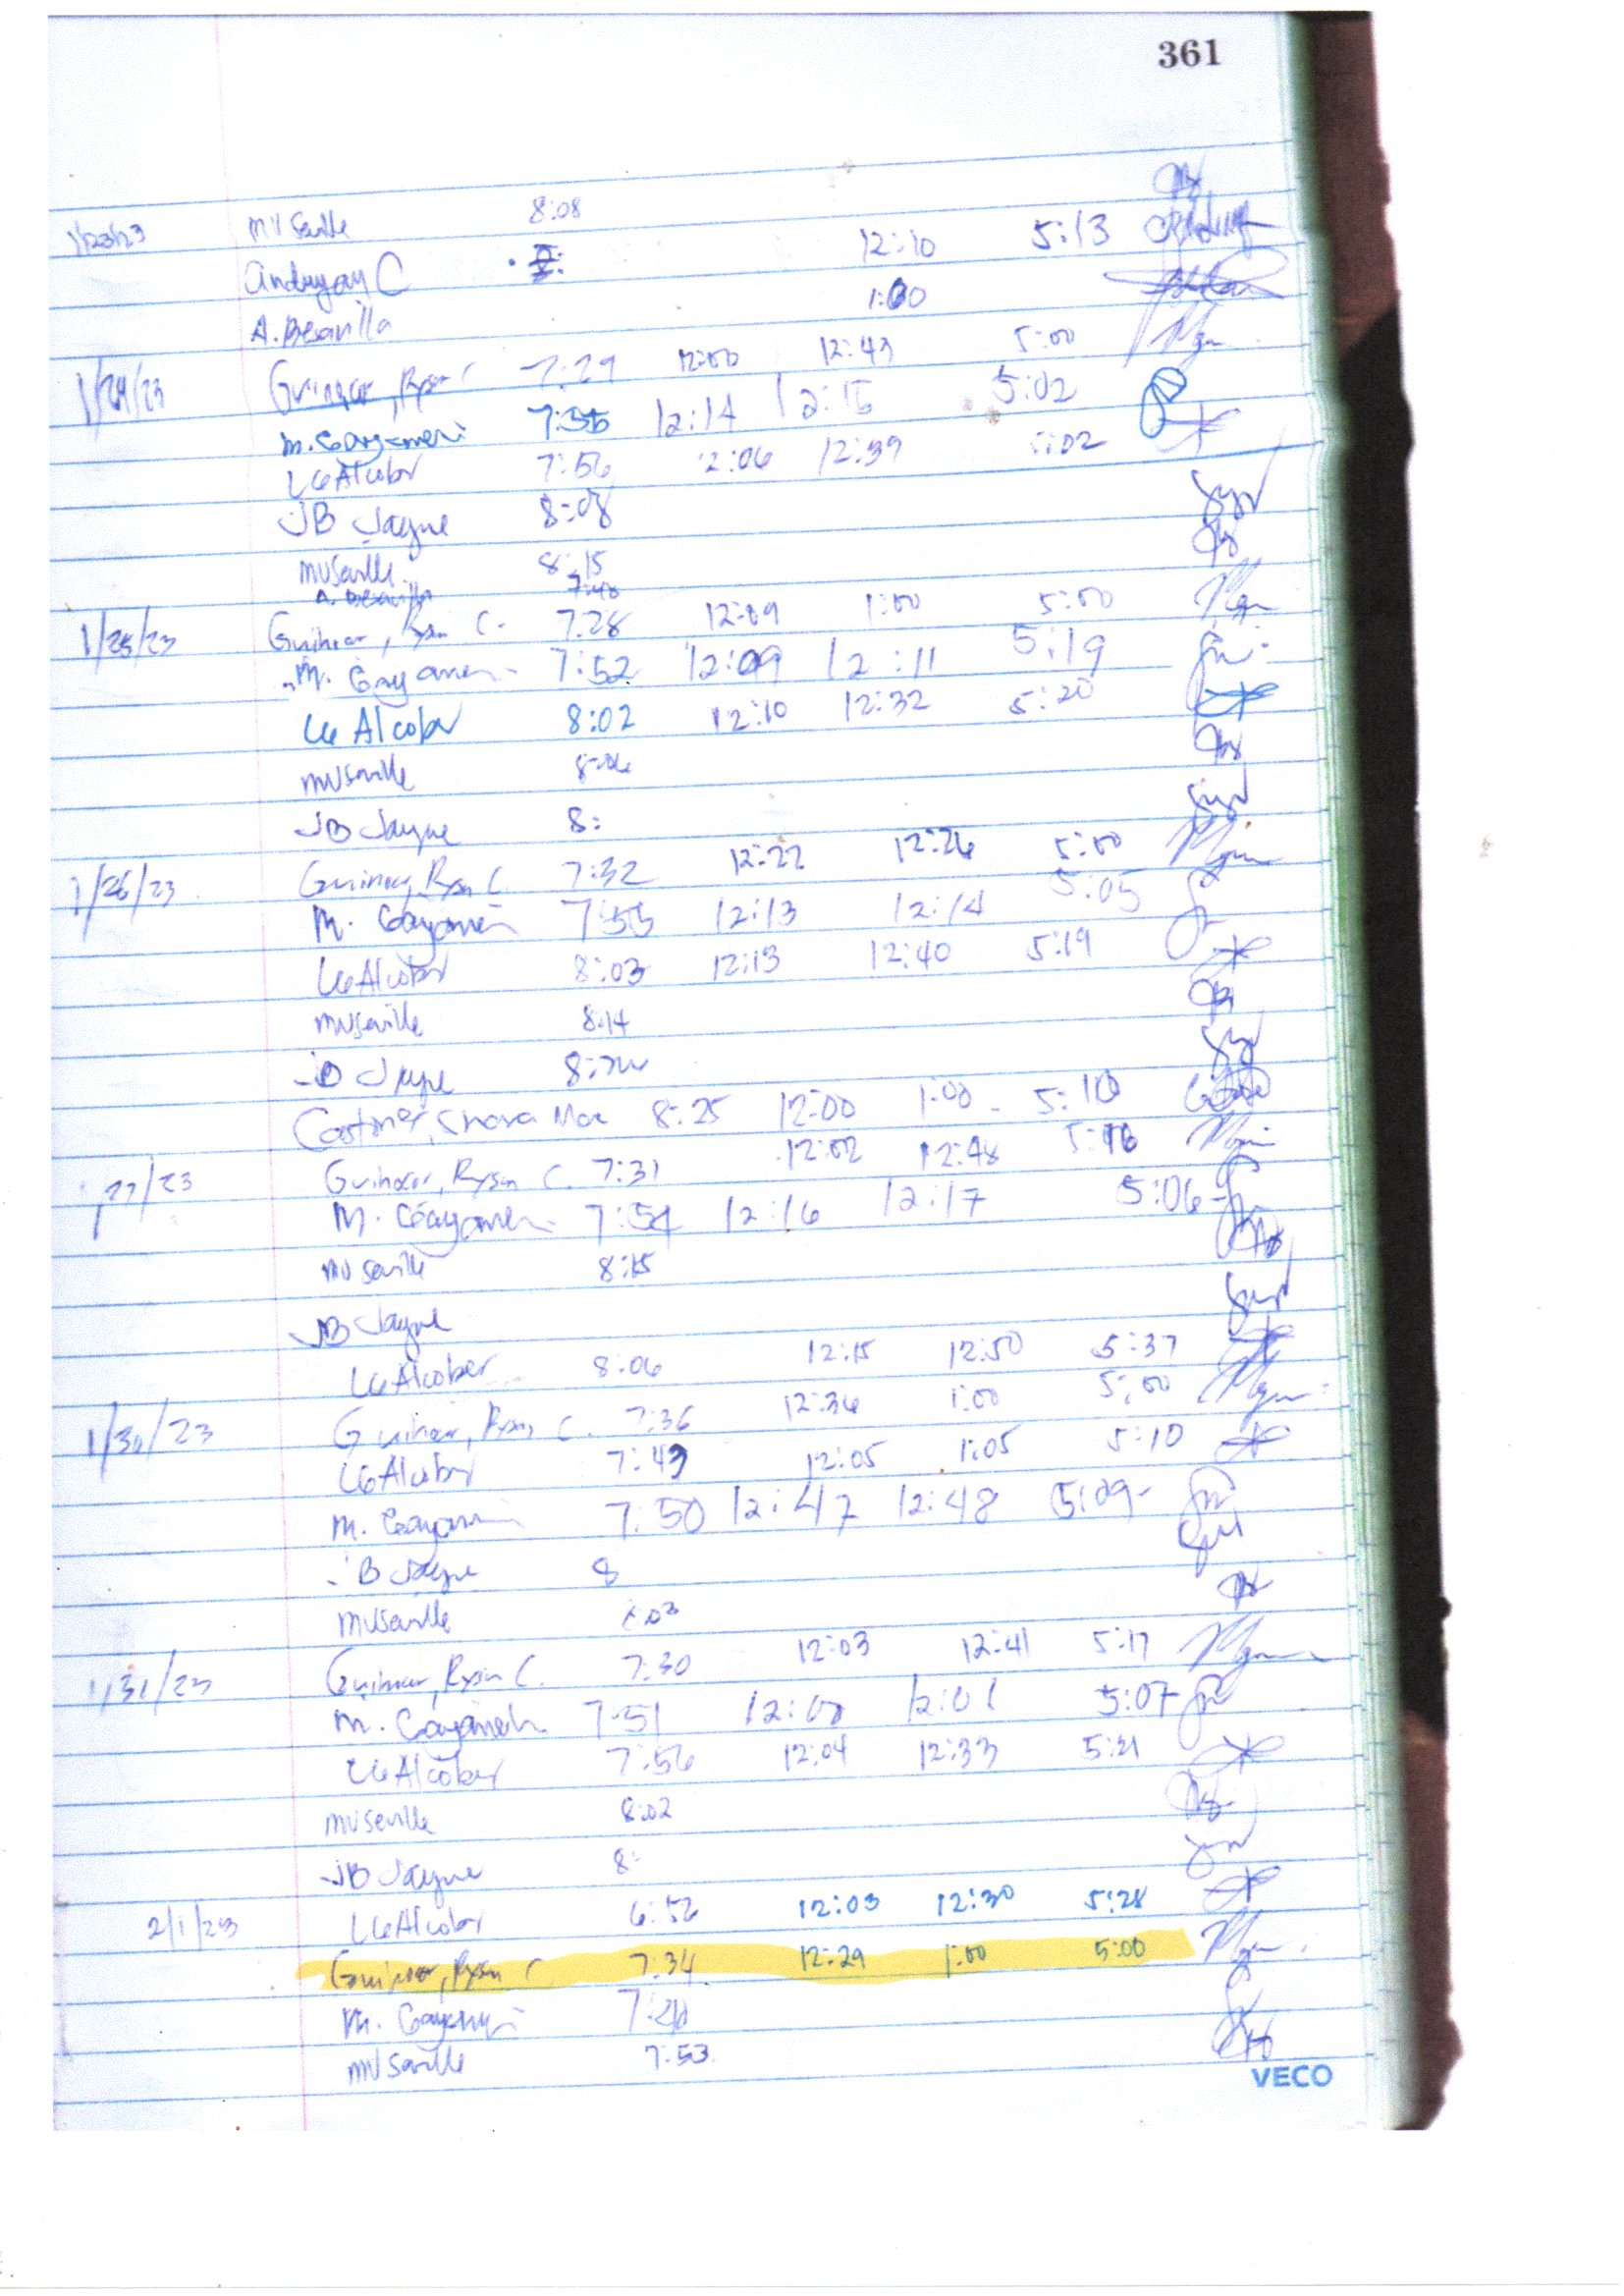 361
1/23/23 MV Seville 8:08
Andugay C 12:10 5:13
A. Besavilla 1:00
1/24/23 Guinocor, Rysan C 7:29 12:00 12:43 5:00
M. Gayamen 7:55 12:14 12:15 5:02
LG Alcober 7:56 12:06 12:39 5:02
JB Jayne 8:08
MV Seville 8:15
A. Besavilla 7:48
1/25/23 Guinocor, Rysan C. 7:28 12:09 1:00 5:00
M. Gayamen 7:52 12:09 12:11 5:19
LG Alcober 8:02 12:10 12:32 5:20
MV Seville 8:06
JB Jayne 8:
1/26/23 Guinocor, Rysan C. 7:32 12:22 12:26 5:00
M. Gayamen 7:55 12:13 12:14 5:05
LG Alcober 8:03 12:13 12:40 5:19
MV Seville 8:14
JB Jayne
8:25 12:00 1:00 5:10
27/23 Guinocor, Rysan C. 7:31 12:02 12:48
M. Gayamen 7:54 12:16 12:17 5:06
MV Seville 8:15
JB Jayne
LG Alcober 8:06 12:15 12:50 5:37
1/30/23 Guinocor, Rysan C. 7:36 12:36 1:00 5:00
LG Alcober 7:43 12:05 1:05 5:10
M. Gayamen 7:50 12:47 12:48 5:09
JB Jayne 8
MV Seville
1/31/23 Guinocor, Rysan C. 7:30 12:03 12:41 5:17
M. Gayamen 7:51 12:01 5:07
LG Alcober 7:56 12:04 12:33 5:21
MV Seville 8:02
JB Jayne 8:
2/1/23 LG Alcober 6:52 12:03 12:30 5:28
Guinocor, Rysan C 7:34 12:29 1:00 5:00
M. Gayamen
MV Seville 7:53
VECO